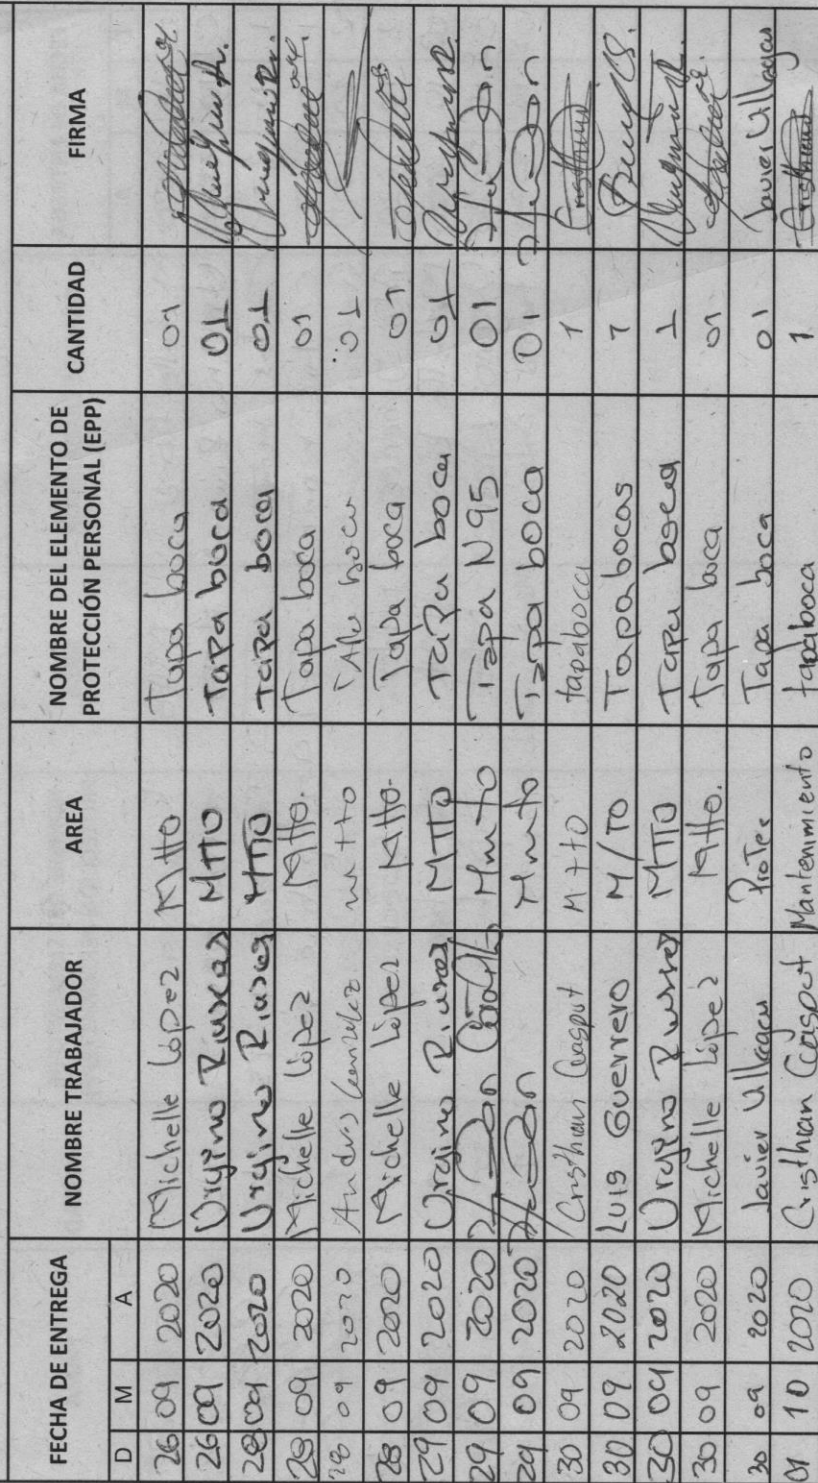 FECHA DE ENTREGA NOMBRE TRABAJADOR AREA NOMBRE DEL ELEMENTO DE PROTECCIÓN PERSONAL (EPP) CANTIDAD FIRMA
D M A
26 09 2020 Michelle López Mtto Tapa boca 01
26 09 2020 MTTO Tapa boca 01
28 09 2020 MTTO Tapa boca 01
28 09 2020 Michelle López Mtto. Tapa boca 01
28 09 2020 Andres Gonzalez mtto Tapa boca 01
28 09 2020 Michelle López Mtto. Tapa boca 01
29 09 2020 MTTO Tapa boca 01
29 09 2020 Mmto Tapa N95 01
29 09 2020 Mmto Tapa boca 01
30 09 2020 Cristhian Cuasput Mtto tapaboca 1 Cristhian
30 09 2020 Luis Guerrero M/TO Tapabocas 1
30 09 2020 MTTO Tapa boca 1
30 09 2020 Michelle López Mtto. Tapa boca 01
30 09 2020 Javier Villagas Tapa boca 01 Javier Villagas
01 10 2020 Cristhian Cuasput Mantenimiento tapaboca 1 Cristhian